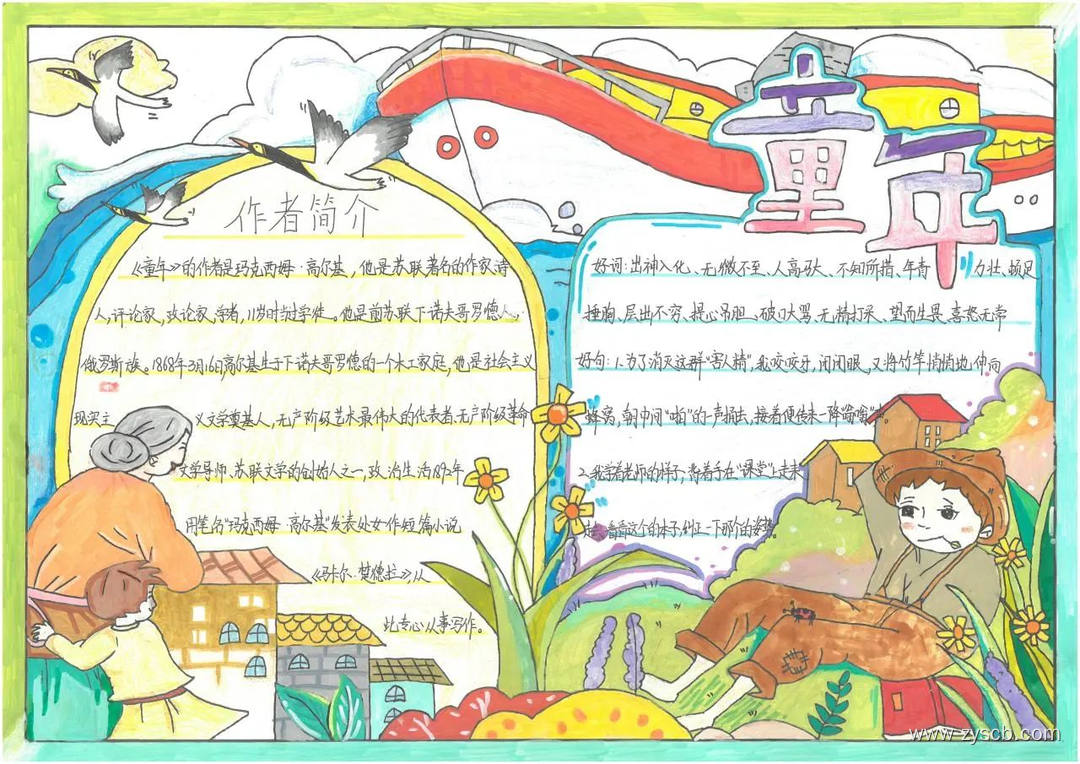 童年
作者简介
《童年》的作者是玛克西姆·高尔基，他是苏联著名的作家，诗
人，评论家，政论家，学者，11岁时当过学徒。他是前苏联下诺夫哥罗德人，
俄罗斯族。1868年3月16日，高尔基生于下诺夫哥罗德的一个木工家庭，他是社会主义
现实主 义文学奠基人，无产阶级艺术最伟大的代表者、无产阶级革命
文学导师、苏联文学的创始人之一，政治生活1892年
用笔名"玛克西姆·高尔基"发表处女作短篇小说
《马卡尔·楚德拉》从
此专心从事写作。
好词：出神入化、无微不至、人高马大、不知所措、年青 力壮、顿足
捶胸、层出不穷、提心吊胆、破口大骂、无精打采、望而生畏、喜怒无常
好句：1.为了消灭这群"害人精"，我咬咬牙，闭闭眼，又将竹竿悄悄地伸向
蜂窝，朝中间"啪"的一声捅去，接着便传来一阵"嗡嗡"
2.我学着老师的样子，背着手在"课堂"上走来
走去，看看这个的本子，纠正一下那个的姿势。
www.zyscb.com